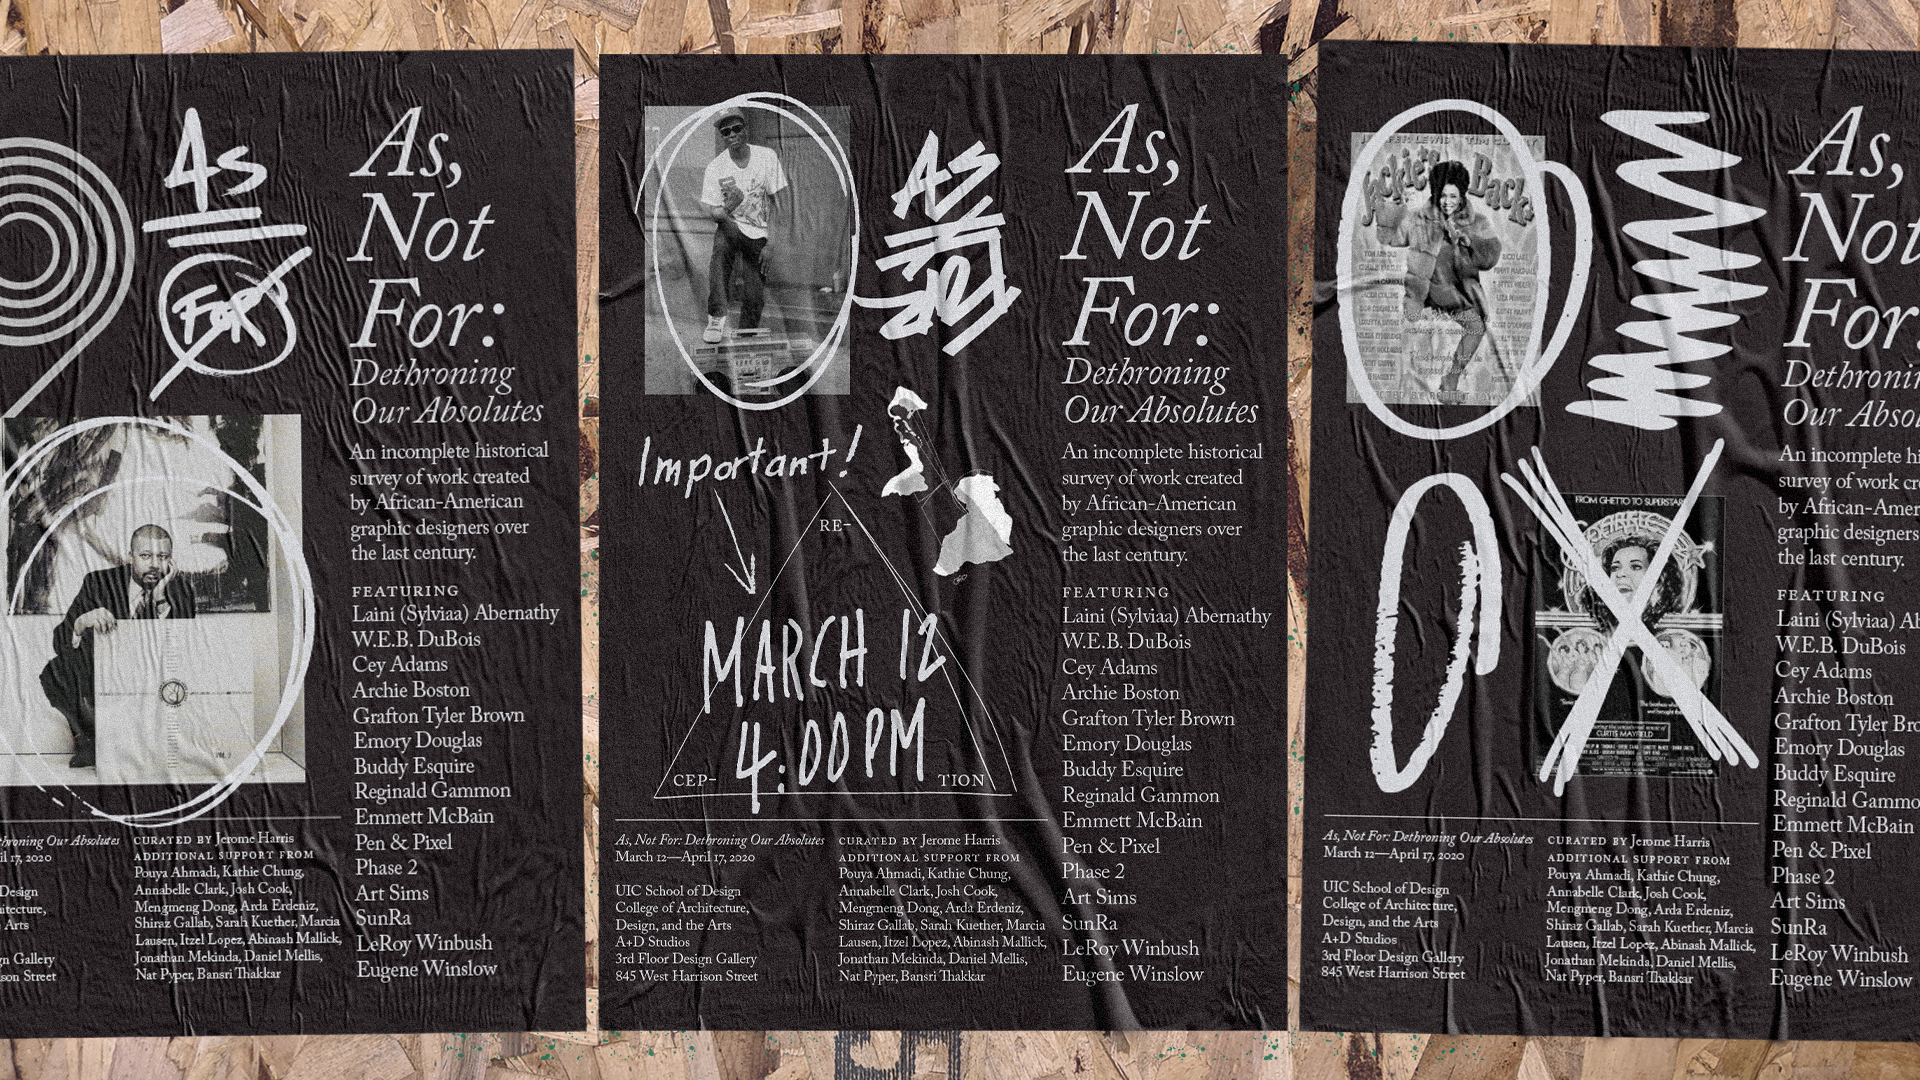 As
For
As,
Not
For:
Dethroning
Our Absolutes
An incomplete historical
survey of work created
by African-American
graphic designers over
the last century.
FEATURING
Laini (Sylviaa) Abernathy
W.E.B. DuBois
Cey Adams
Archie Boston
Grafton Tyler Brown
Emory Douglas
Buddy Esquire
Reginald Gammon
Emmett McBain
Pen & Pixel
Phase 2
Art Sims
SunRa
LeRoy Winbush
Eugene Winslow
throning Our Absolutes
il 17, 2020
Design
itecture,
Arts
gn Gallery
son Street
CURATED BY Jerome Harris
ADDITIONAL SUPPORT FROM
Pouya Ahmadi, Kathie Chung,
Annabelle Clark, Josh Cook,
Mengmeng Dong, Arda Erdeniz,
Shiraz Gallab, Sarah Kuether, Marcia
Lausen, Itzel Lopez, Abinash Mallick,
Jonathan Mekinda, Daniel Mellis,
Nat Pyper, Bansri Thakkar
As
Important!
RE-
CEP-
TION
MARCH 12
4:00PM
As,
Not
For:
Dethroning
Our Absolutes
An incomplete historical
survey of work created
by African-American
graphic designers over
the last century.
FEATURING
Laini (Sylviaa) Abernathy
W.E.B. DuBois
Cey Adams
Archie Boston
Grafton Tyler Brown
Emory Douglas
Buddy Esquire
Reginald Gammon
Emmett McBain
Pen & Pixel
Phase 2
Art Sims
SunRa
LeRoy Winbush
Eugene Winslow
As, Not For: Dethroning Our Absolutes
March 12—April 17, 2020
UIC School of Design
College of Architecture,
Design, and the Arts
A+D Studios
3rd Floor Design Gallery
845 West Harrison Street
CURATED BY Jerome Harris
ADDITIONAL SUPPORT FROM
Pouya Ahmadi, Kathie Chung,
Annabelle Clark, Josh Cook,
Mengmeng Dong, Arda Erdeniz,
Shiraz Gallab, Sarah Kuether, Marcia
Lausen, Itzel Lopez, Abinash Mallick,
Jonathan Mekinda, Daniel Mellis,
Nat Pyper, Bansri Thakkar
LEWIS TIM
Back
FROM GHETTO TO SUPERSTAR
CURTIS MAYFIELD
As,
Not
For:
Dethronin
Our Absol
An incomplete hi
survey of work cr
by African-Amer
graphic designers
the last century.
FEATURING
Laini (Sylviaa) Ab
W.E.B. DuBois
Cey Adams
Archie Boston
Grafton Tyler Bro
Emory Douglas
Buddy Esquire
Reginald Gammo
Emmett McBain
Pen & Pixel
Phase 2
Art Sims
SunRa
LeRoy Winbush
Eugene Winslow
As, Not For: Dethroning Our Absolutes
March 12—April 17, 2020
UIC School of Design
College of Architecture,
Design, and the Arts
A+D Studios
3rd Floor Design Gallery
845 West Harrison Street
CURATED BY Jerome Harris
ADDITIONAL SUPPORT FROM
Pouya Ahmadi, Kathie Chung,
Annabelle Clark, Josh Cook,
Mengmeng Dong, Arda Erdeniz,
Shiraz Gallab, Sarah Kuether, Marcia
Lausen, Itzel Lopez, Abinash Mallick,
Jonathan Mekinda, Daniel Mellis,
Nat Pyper, Bansri Thakkar